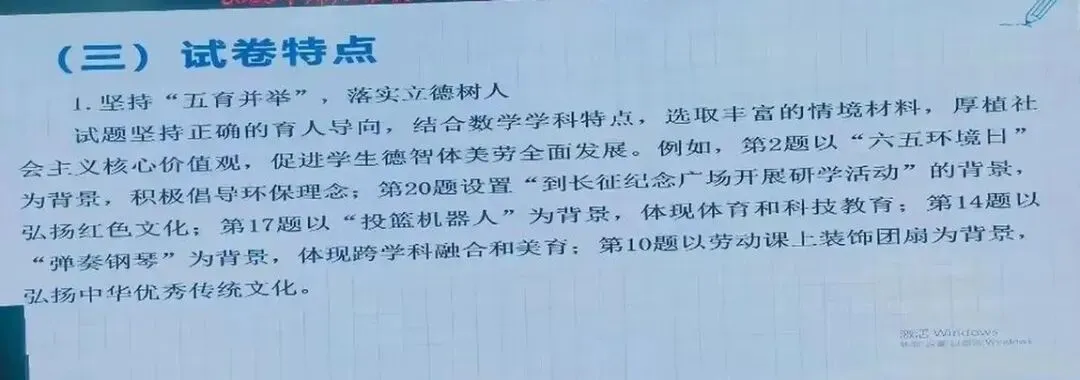 （三）试卷特点
1. 坚持“五育并举”，落实立德树人
试题坚持正确的育人导向，结合数学学科特点，选取丰富的情境材料，厚植社
会主义核心价值观，促进学生德智体美劳全面发展。例如，第2题以“六五环境日”
为背景，积极倡导环保理念；第20题设置“到长征纪念广场开展研学活动”的背景，
弘扬红色文化；第17题以“投篮机器人”为背景，体现体育和科技教育；第14题以
“弹奏钢琴”为背景，体现跨学科融合和美育；第10题以劳动课上装饰团扇为背景，
弘扬中华优秀传统文化。
激活 Windows